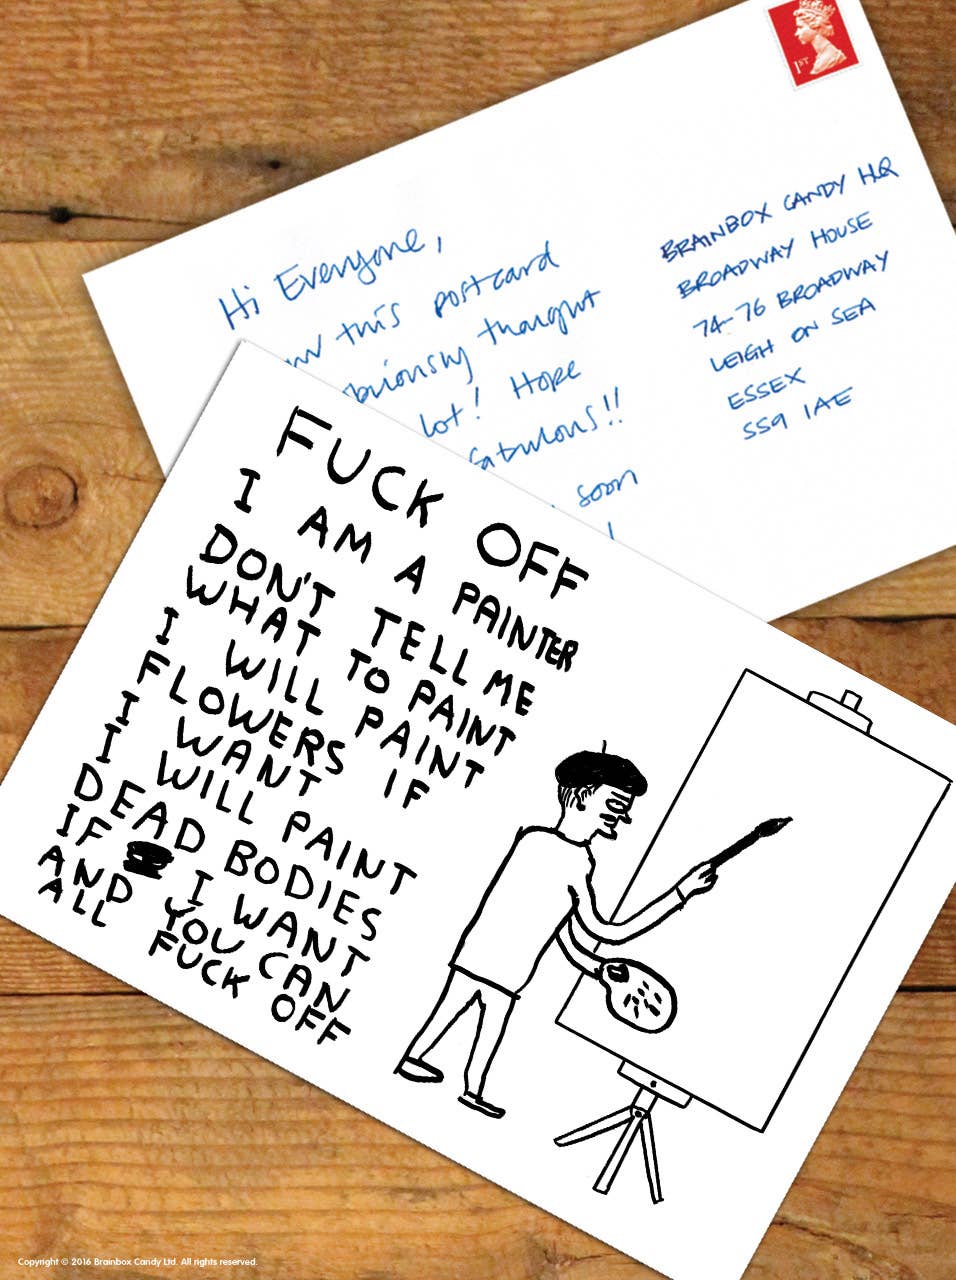 1ST
Hi Everyone,
this postcard
thought
lot! Hope
fabulous!!
soon
BRAINBOX CANDY HQ
BROADWAY HOUSE
74-76 BROADWAY
LEIGH ON SEA
ESSEX
SS9 1AE
FUCK OFF
I AM A PAINTER
DON'T TELL ME
WHAT TO PAINT
I WILL PAINT
FLOWERS IF
I WANT
I WILL PAINT
DEAD BODIES
IF I WANT
AND YOU CAN
ALL FUCK OFF
Copyright © 2016 Brainbox Candy Ltd. All rights reserved.